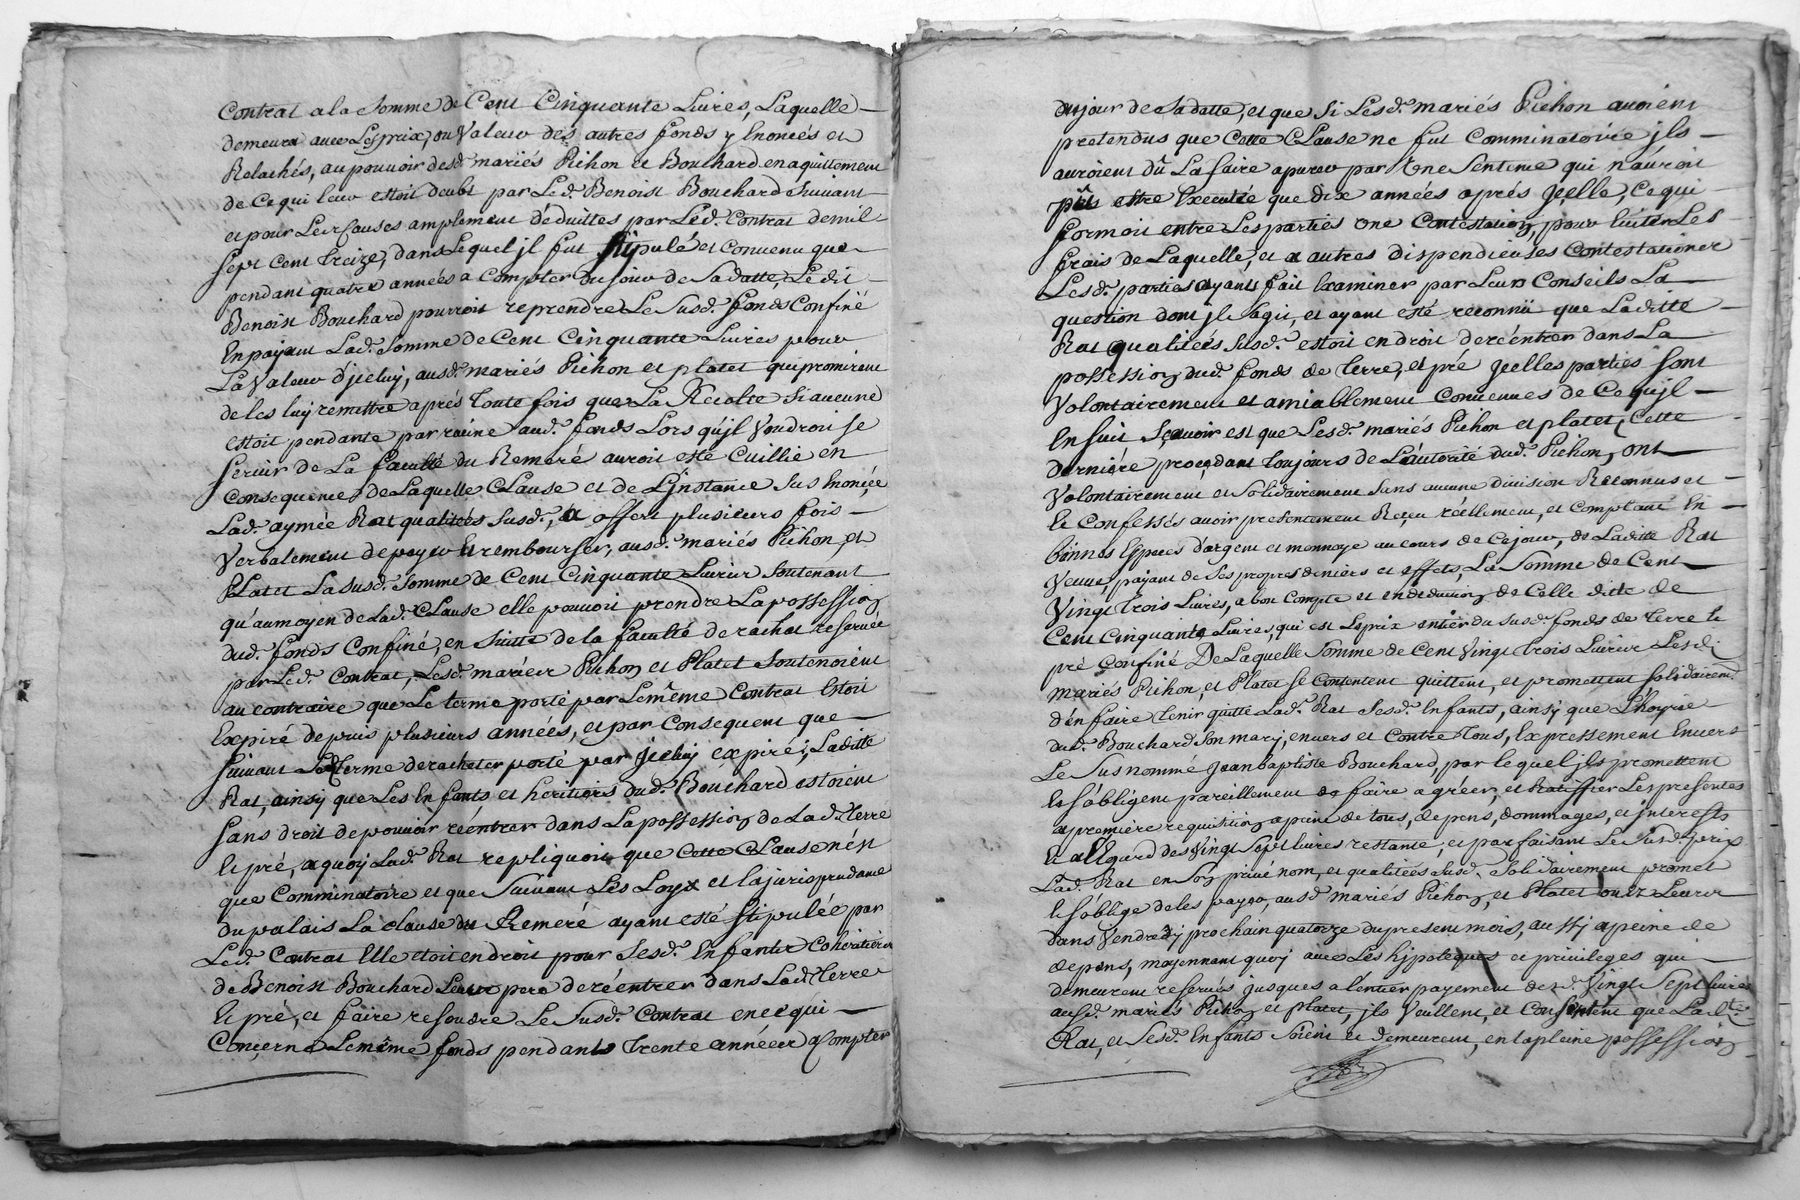 Contrat a la Somme de Cent Cinquante Livres, Laquelle
demeura avec Lesprix, ou Valeur des autres fonds y Enoncés et
Relachés, au pouvoir desd. mariés Pichon et Bouchard en aquittement
de Ce qui leur estoit deubt par Led. Benoist Bouchard Suivant
et pour Les Causes amplement déduittes par Led. Contrat de mil
sept Cent treize, dans Lequel jl fut stipulé et Convenu que
pendant quatre années a Compter du jour de Sa datte, Ledit
Benoist Bouchard pourroit reprendre Le Susd. fonds Confiné
En payant Lad. Somme de Cent Cinquante Livres pour
La Valeur d'jceluy, ausd. mariés Pichon et platet qui promirent
de les luy remettre aprés toute fois que La Récolte Si aucune
estoit pendante par racine aud. fonds Lors qu'jl Voudroit se
servir de La faculté du Remeré auroit esté Cuillie en
Consequence de Laquelle Clause et de L'jnstance Sus Enoncée
Lad. aymée Rat qualitées Susd., a offert plusieurs fois
Verbalement de payer et rembourser, ausd. mariés Pichon, et
Platet La susd. Somme de Cent Cinquante Livres Soutenant
qu'au moyen de Lad. Clause elle pouvoit prendre La possession
dud. fonds Confiné, en Suitte de la faculté de rachat reservée
par Led. Contrat, Lesd. mariés Pichon et Platet Soutenoient
au contraire que Le terme porté par Le même Contrat Estoit
Expiré depuis plusieurs années, et par Consequent que
suivant Led. terme de rachater porté par jceluy expiré, Laditte
Rat, ainsy que Les Enfants et heritiers dud. Bouchard estoient
sans droit de pouvoir reéntrer dans La possession de Lad. terre
et pré, a quoy Lad. Rat repliquoit que Cette Clause n'ést
que Comminatoire et que Suivant Les Loyx et la jurisprudance
du palais La Clause du Remeré ayant esté stipulée par
Led. Contrat Elle étoit en droit pour Sesd. Enfants Cohéritiers
de Benoist Bouchard Leur pere de reéntrer dans Lad. terre
et pré, et faire resoudre Le Susd. Contrat en ce qui
Concerne Le même fonds pendant trente années a Compter
du jour de Sa datte, et que Si Lesd. mariés Pichon avoient
pretendus que Cette Clause ne fut Comminatoire jls
auroient dû La faire apurer par Une Sentence qui n'auroit
pû estre Executée que dix années aprés jcelle, Ce qui
formoit entre Les parties une Contestation, pour éviter Les
frais de Laquelle, et a autres dispendieuses Contestations
Lesd. parties ayants fait Examiner par Leurs Conseils La
question dont jl s'agit, et ayant esté reconnü que Laditte
Rat qualitées Susd. estoit en droit de reéntrer dans La
possession dud. fonds de terre, et pré jcelles parties Sont
Volontairement et amiablement Convenues de Ce qu'jl
En suit Sçavoir est que Lesd. mariés Pichon et platet, Cette
derniére procedant toujours de L'autorité dud. Pichon, ont
Volontairement et Solidairement Sans aucune division Reconnus et
et Confessés avoir presentement Reçeu réellement, et Comptant En
bonnes Especes d'argent et monnoye au cours de Ce jour, de Laditte Rat
Veuve, payant de Ses propres deniers et effets, La Somme de Cent
Vingt trois Livres, a bon Compte et en deduction de Celle ditte de
Cent Cinquante Livres, qui est Le prix entier du Susd. fonds de terre et
pré Confiné De Laquelle Somme de Cent Vingt trois Livres Lesd.
mariés Pichon, et Platet Se Contentent quittent, et promettent Solidairemt
d'én faire tenir quitte Lad. Rat Sesd. Enfants, ainsy que L'hoyrie
dud. Bouchard Son mary, envers et Contre tous, Expressement Envers
Le Sus nommé Jean baptiste Bouchard, par lequel jls promettent
et s'obligent pareillement de faire agréer, et Ratiffier Les presentes
a premiere requisition a peine de tous, depens, dommages, et jnterests
Et a l'Egard des Vingt Sept livres restante, et parfaisant Le Susd. prix
Lad. Rat en Son privé nom, et qualitées Susd. Solidairement promet
et s'oblige de les payer, ausd. mariés Pichon, et Platet
dans Vendredy prochain quatorze du present mois, aussy a peine de
depens, moyennant quoy avec Les hypoteques et privileges qui
demeurent reservés jusques a l'éntier payement desd. Vingt Sept livres
ausd. mariés Pichon et platet, jls Veullent, et Consentent que Ladte
Rat, et Sesd. Enfants Soient et demeurent, en la pleine possession